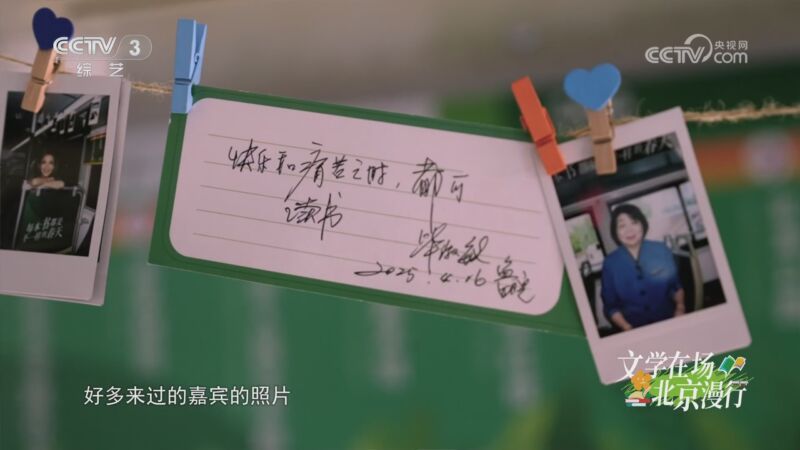 CCTV 3
综艺
央视网
CCTV.com
快乐和痛苦之时，都可
读书
毕淑敏
2025.4.16
每本书都是
不一样的春天
文学在场
北京漫行
好多来过的嘉宾的照片